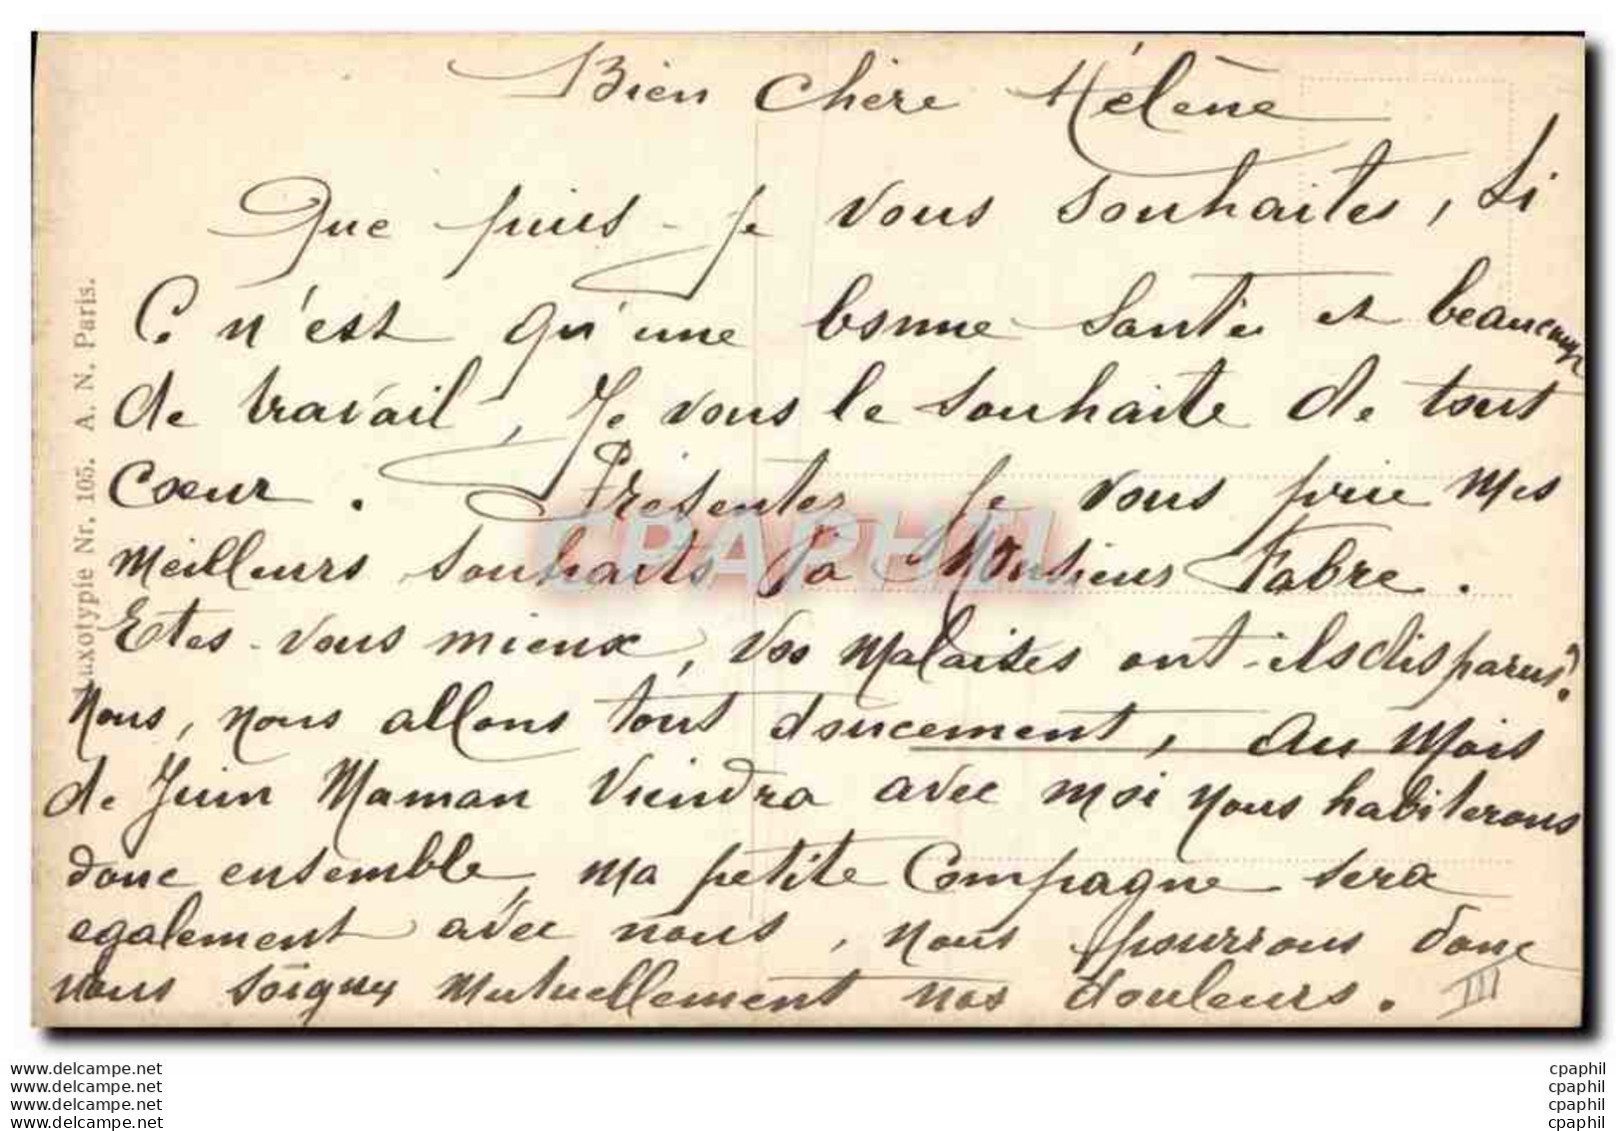 Bien Chère Hélène
Que puis-je vous souhaites, si
C. n'est qu'une bonne santé et beaucoup
de travail, Je vous le souhaite de tout
Coeur. Présentez je vous prie mes
meilleurs souhaits à Monsieur Fabre.
Etes-vous mieux, vos malaises ont-ils disparus?
Nous, nous allons tout doucement, au mois
de Juin Maman viendra avec moi nous habiterons
donc ensemble, ma petite Compagne sera
egalement avec nous, nous pourrons donc
nous soigner mutuellement nos douleurs. III
Luxotypie Nr. 105. A. N. Paris.
CPAPHIL
www.delcampe.net
www.delcampe.net
www.delcampe.net
www.delcampe.net
cpaphil
cpaphil
cpaphil
cpaphil